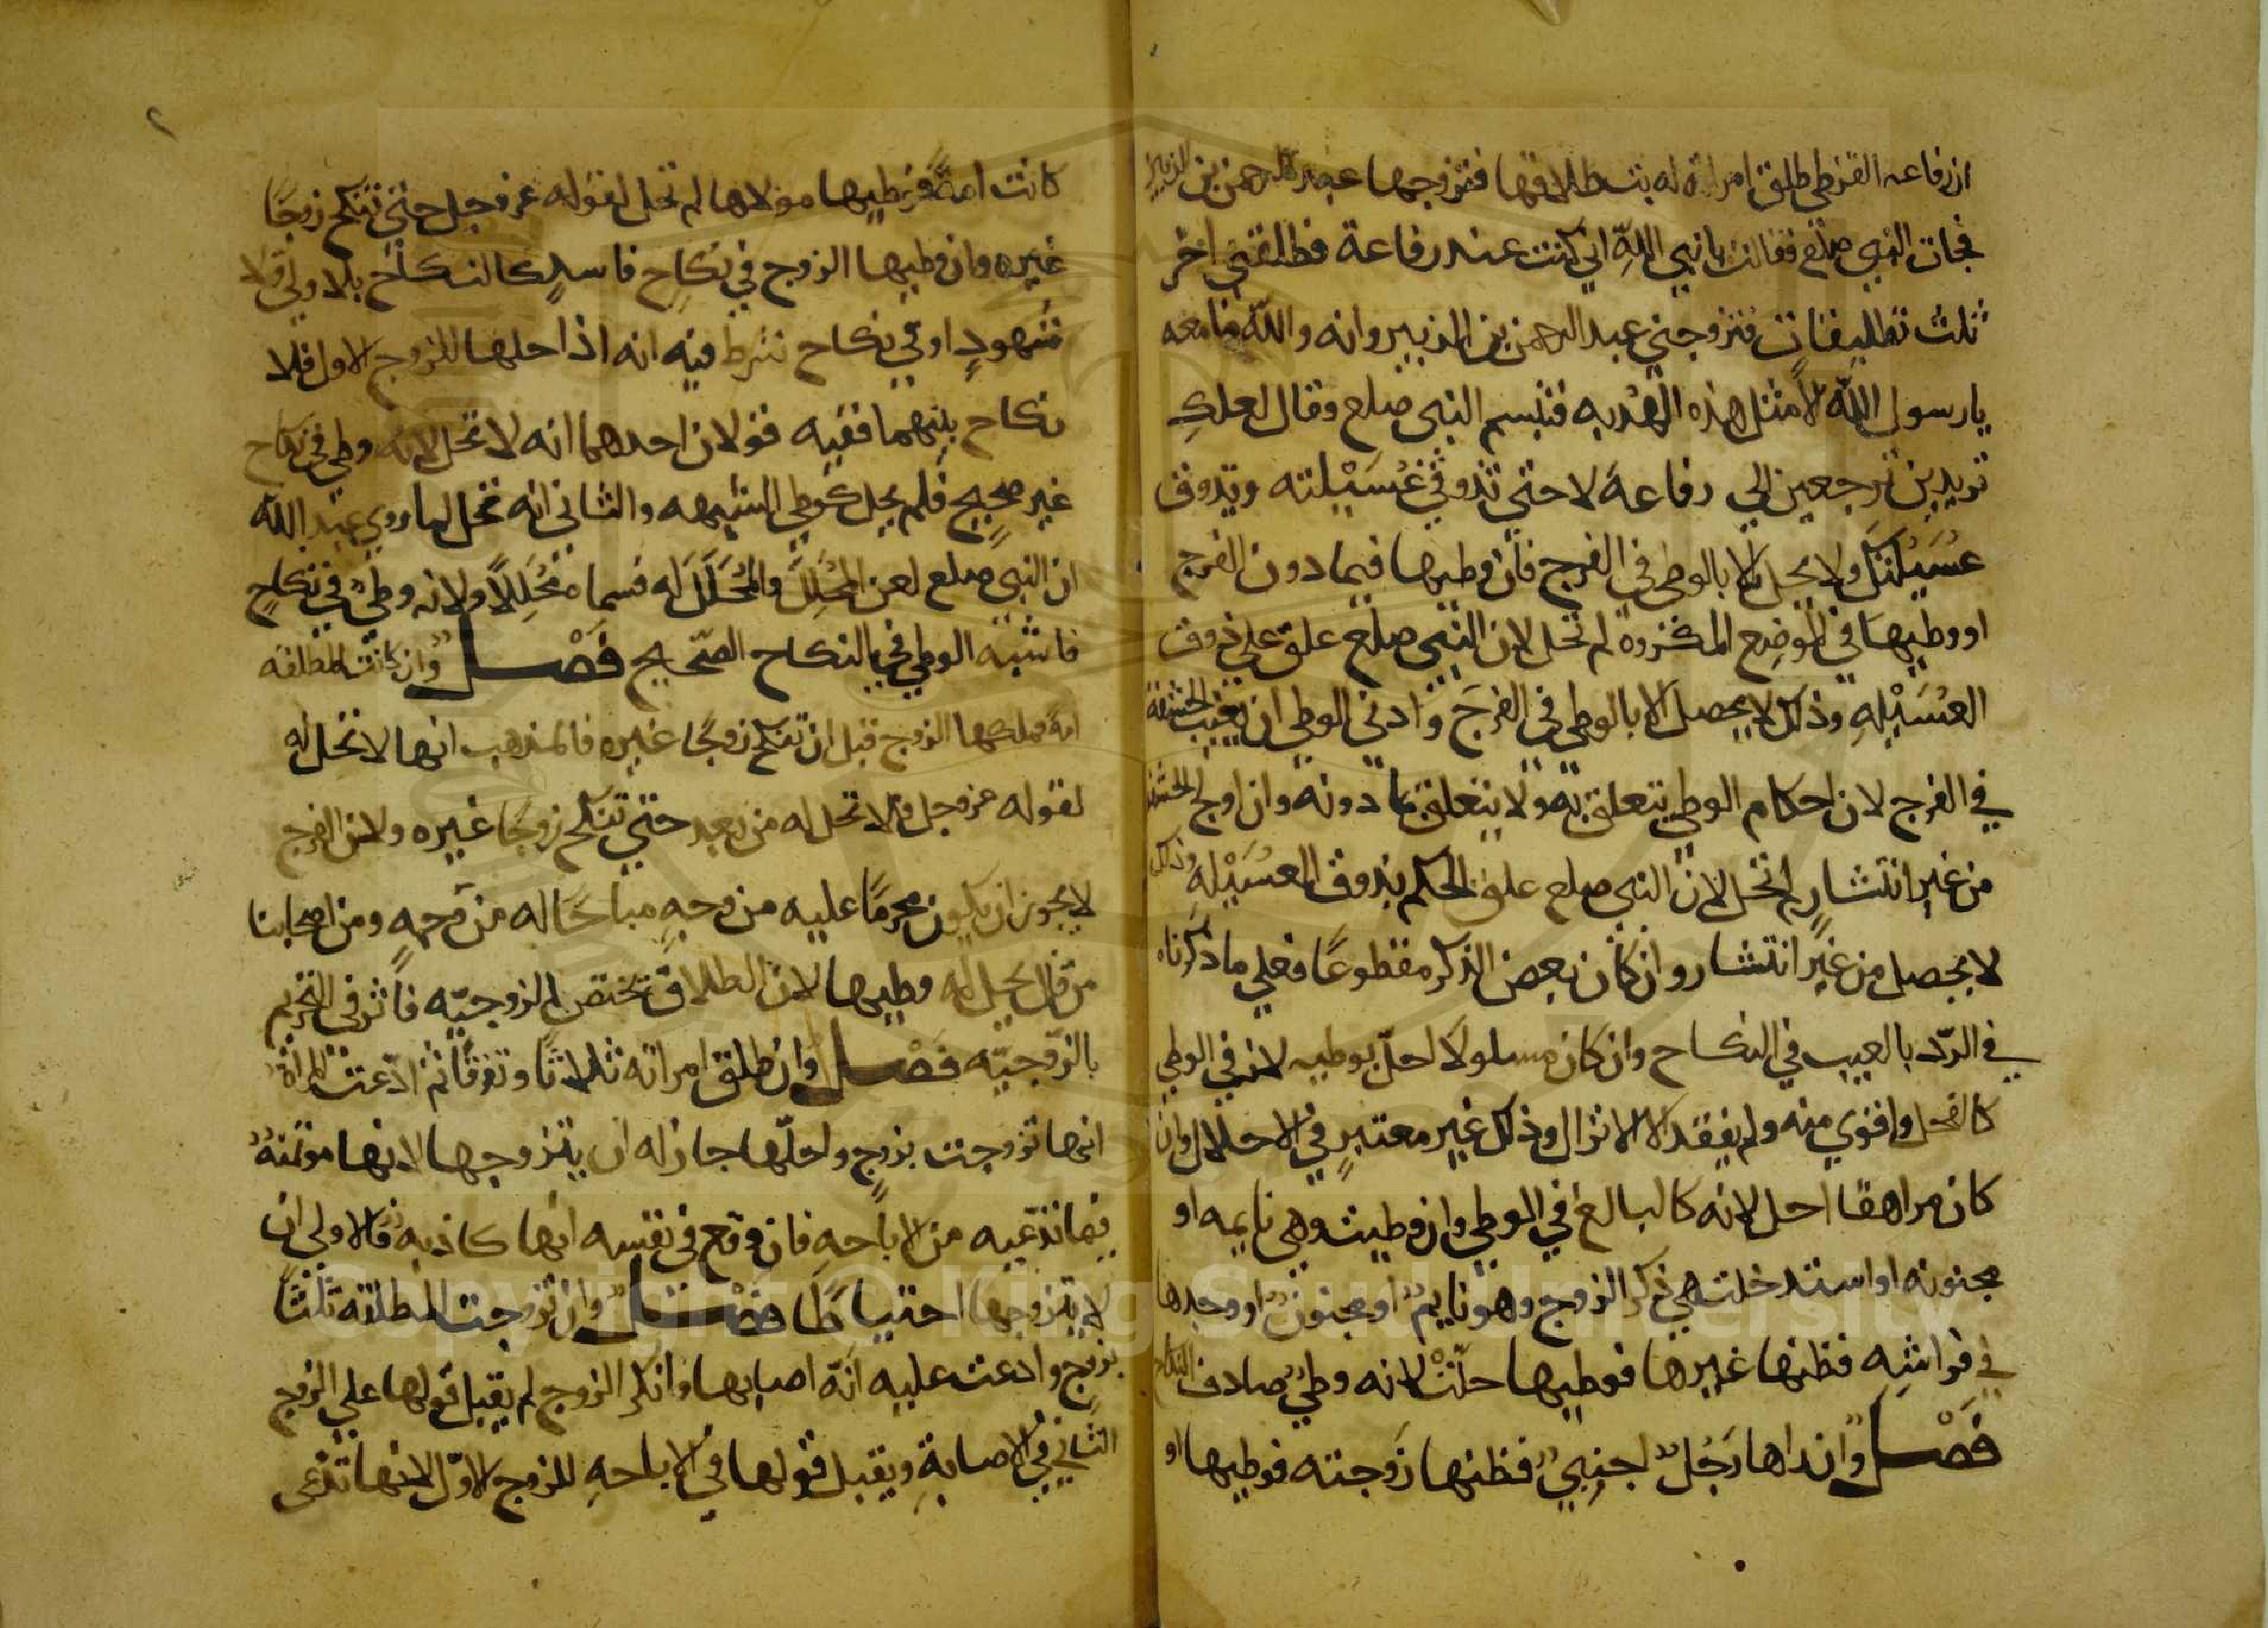 ان رفاعه القرظي طلق امراته له بت طلاقها فتزوجها عبد الرحمن بن الزبير
فجات النبي صلع فقالت يا نبي اللّه اني كنت عند رفاعة فطلقني اخر
ثلث تطليقات فتزوجني عبد الرحمن بن الزبير وانه واللّه ما معه
يا رسول اللّه الا مثل هذه الهُدْبه فتبسم النبي صلع وقال لعلكِ
تريدين ترجعين الي رفاعة لا حتي تذوقي عُسَيْلته ويذوق
عُسَيْلتَكِ ولا يحل الا بالوطي في الفرج فان وطيها فيما دون الفرج
او وطيها في الموضِع المكروه لم تحل لان النبي صلع علق علي ذوق
العُسَيْلهِ وذلك لا يحصل الا بالوطي في الفرج وادني الوطي ان يغيب الحشفة
في الفرج لان احكام الوطي تتعلق به ولا يتعلق بما دونه وان اولج الحشفة
من غير انتشارٍ لم تحل لان النبي صلع علق الحكم بذوق العسَيْلهِ وذلك
لا يحصل من غير انتشار وان كان بعض الذكر مقطوعًا فعلي ما ذكرناه
في الردّ بالعيب في النكاح وان كان مسلولا احلّ بوطيه لانه في الوطي
كالفحل واقوي منه ولم يفقد الا الانزال وذلك غير معتبرٍ في الاحلال وان
كان مراهقا احل لانه كالبالغ في الوطي وان وطيت وهي نايمه او
مجنونه او استدخلت هي ذكر الزوج وهو نايمٌ او مجنونٌ او وجدها
في فراشِه فظنها غيرها فوطيها حلّتْ لانه وطيٌ صادف النكاح
فَصْل وان راها رَجُلٌ اجنبيٌ فظنها زَوجته فوطيها او
كانت امةً فوطيها مولاها لم تحل لقوله عز وجل حتي تنكح زوجًا
غيره وان وطيها الزوج في نكاحٍ فاسدٍ كالنكاح بلا وليٍّ ولا
شهودٍ او في نكاح شرط فيه انه اذا احلها للزوج الاول فلا
نكاح بينهما ففيه قولان احدهما انه لا تحل لانه وطي في نكاح
غير صحيحٍ فلم يحل كوطي الشبهه والثاني انه تحل لما روي عبد اللّه
ان النبي صلع لعن المُحَلِّلَ والمُحَلَّلَ له فسماه مُحَلِّلًا ولانه وطيٌ في نكاحٍ
فاشبه الوطي في النكاح الصّحيح فَصْل وان كانت المطلقه
امةً فملكها الزوج قبل ان تنكح زوجًا غيره فالمذهب انها لا تحل له
لقوله عز وجل فلا تحل له من بعد حتي تنكح زوجًا غيره ولان الفرج
لا يجوز ان يكون محرمًا عليه من وجهٍ مباحًا له من وجهٍ ومن اصحابنا
من قال يحل له وطيها لان الطلاق يختص الزوجيّه فاثر في التحريم
بالزّوجيّه فَصْل وان طلق امراته ثلاثا وتفرقا ثم ادّعت المراة
انها تزوجت بزوجٍ واحلّها جاز له ان يتزوجها لانها موتمنةٌ
فيما تدّعيه من الاباحهِ فان وقع في نفسه انها كاذبه فالاولي ان
لا يتزوجها احتياطًا فَصْل وان تزوجت المطلقه ثلثا
بزوجٍ وادعت عليه انّه اصابها وانكر الزوج لم يقبل قولها علي الزوج
الثاني في الاصابةِ ويقبل قولها في الاباحهِ للزوج الاوّل لانها تدّعي
Copyright © King Saud University